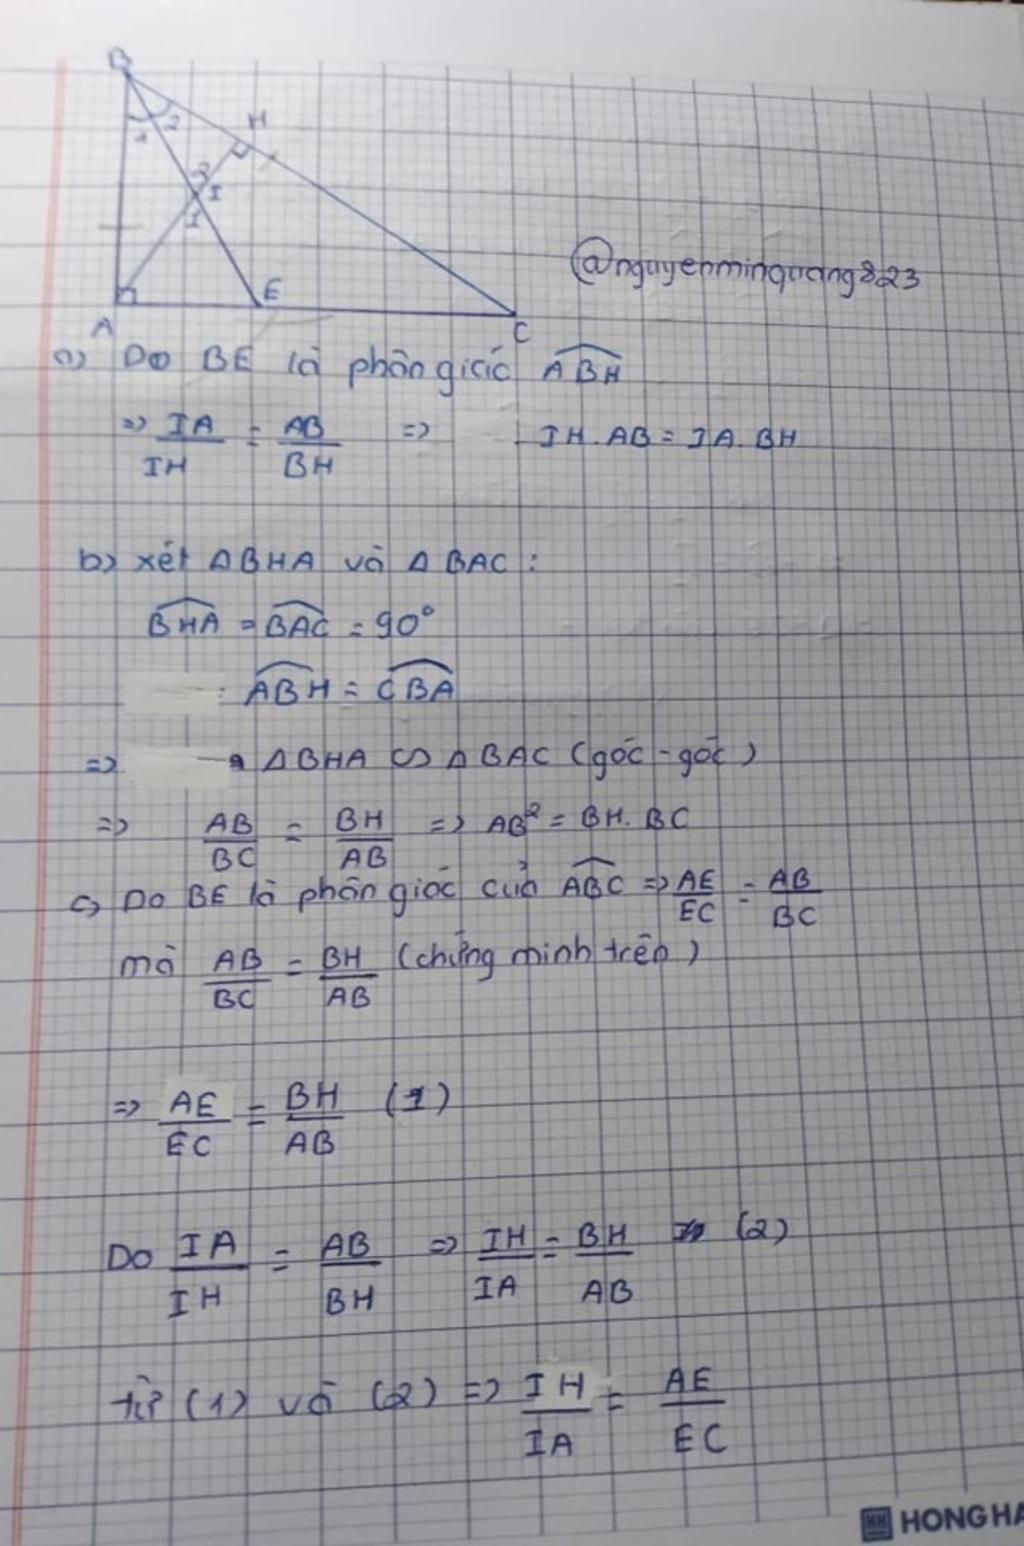 B
1 2
H
2
I
1
@nguyenminquang823
E
A
C
a) Do BE là phân giác ABH
=> IA/IH = AB/BH => IH.AB = IA.BH
b) xét ΔBHA và ΔBAC:
BHA = BAC = 90°
ABH = CBA
=> ΔBHA ∽ ΔBAC (góc - góc)
=> AB/BC = BH/AB => AB² = BH.BC
c) Do BE là phân giác của ABC => AE/EC = AB/BC
mà AB/BC = BH/AB (chứng minh trên)
=> AE/EC = BH/AB (1)
Do IA/IH = AB/BH => IH/IA = BH/AB (2)
từ (1) và (2) => IH/IA = AE/EC
HONG HA